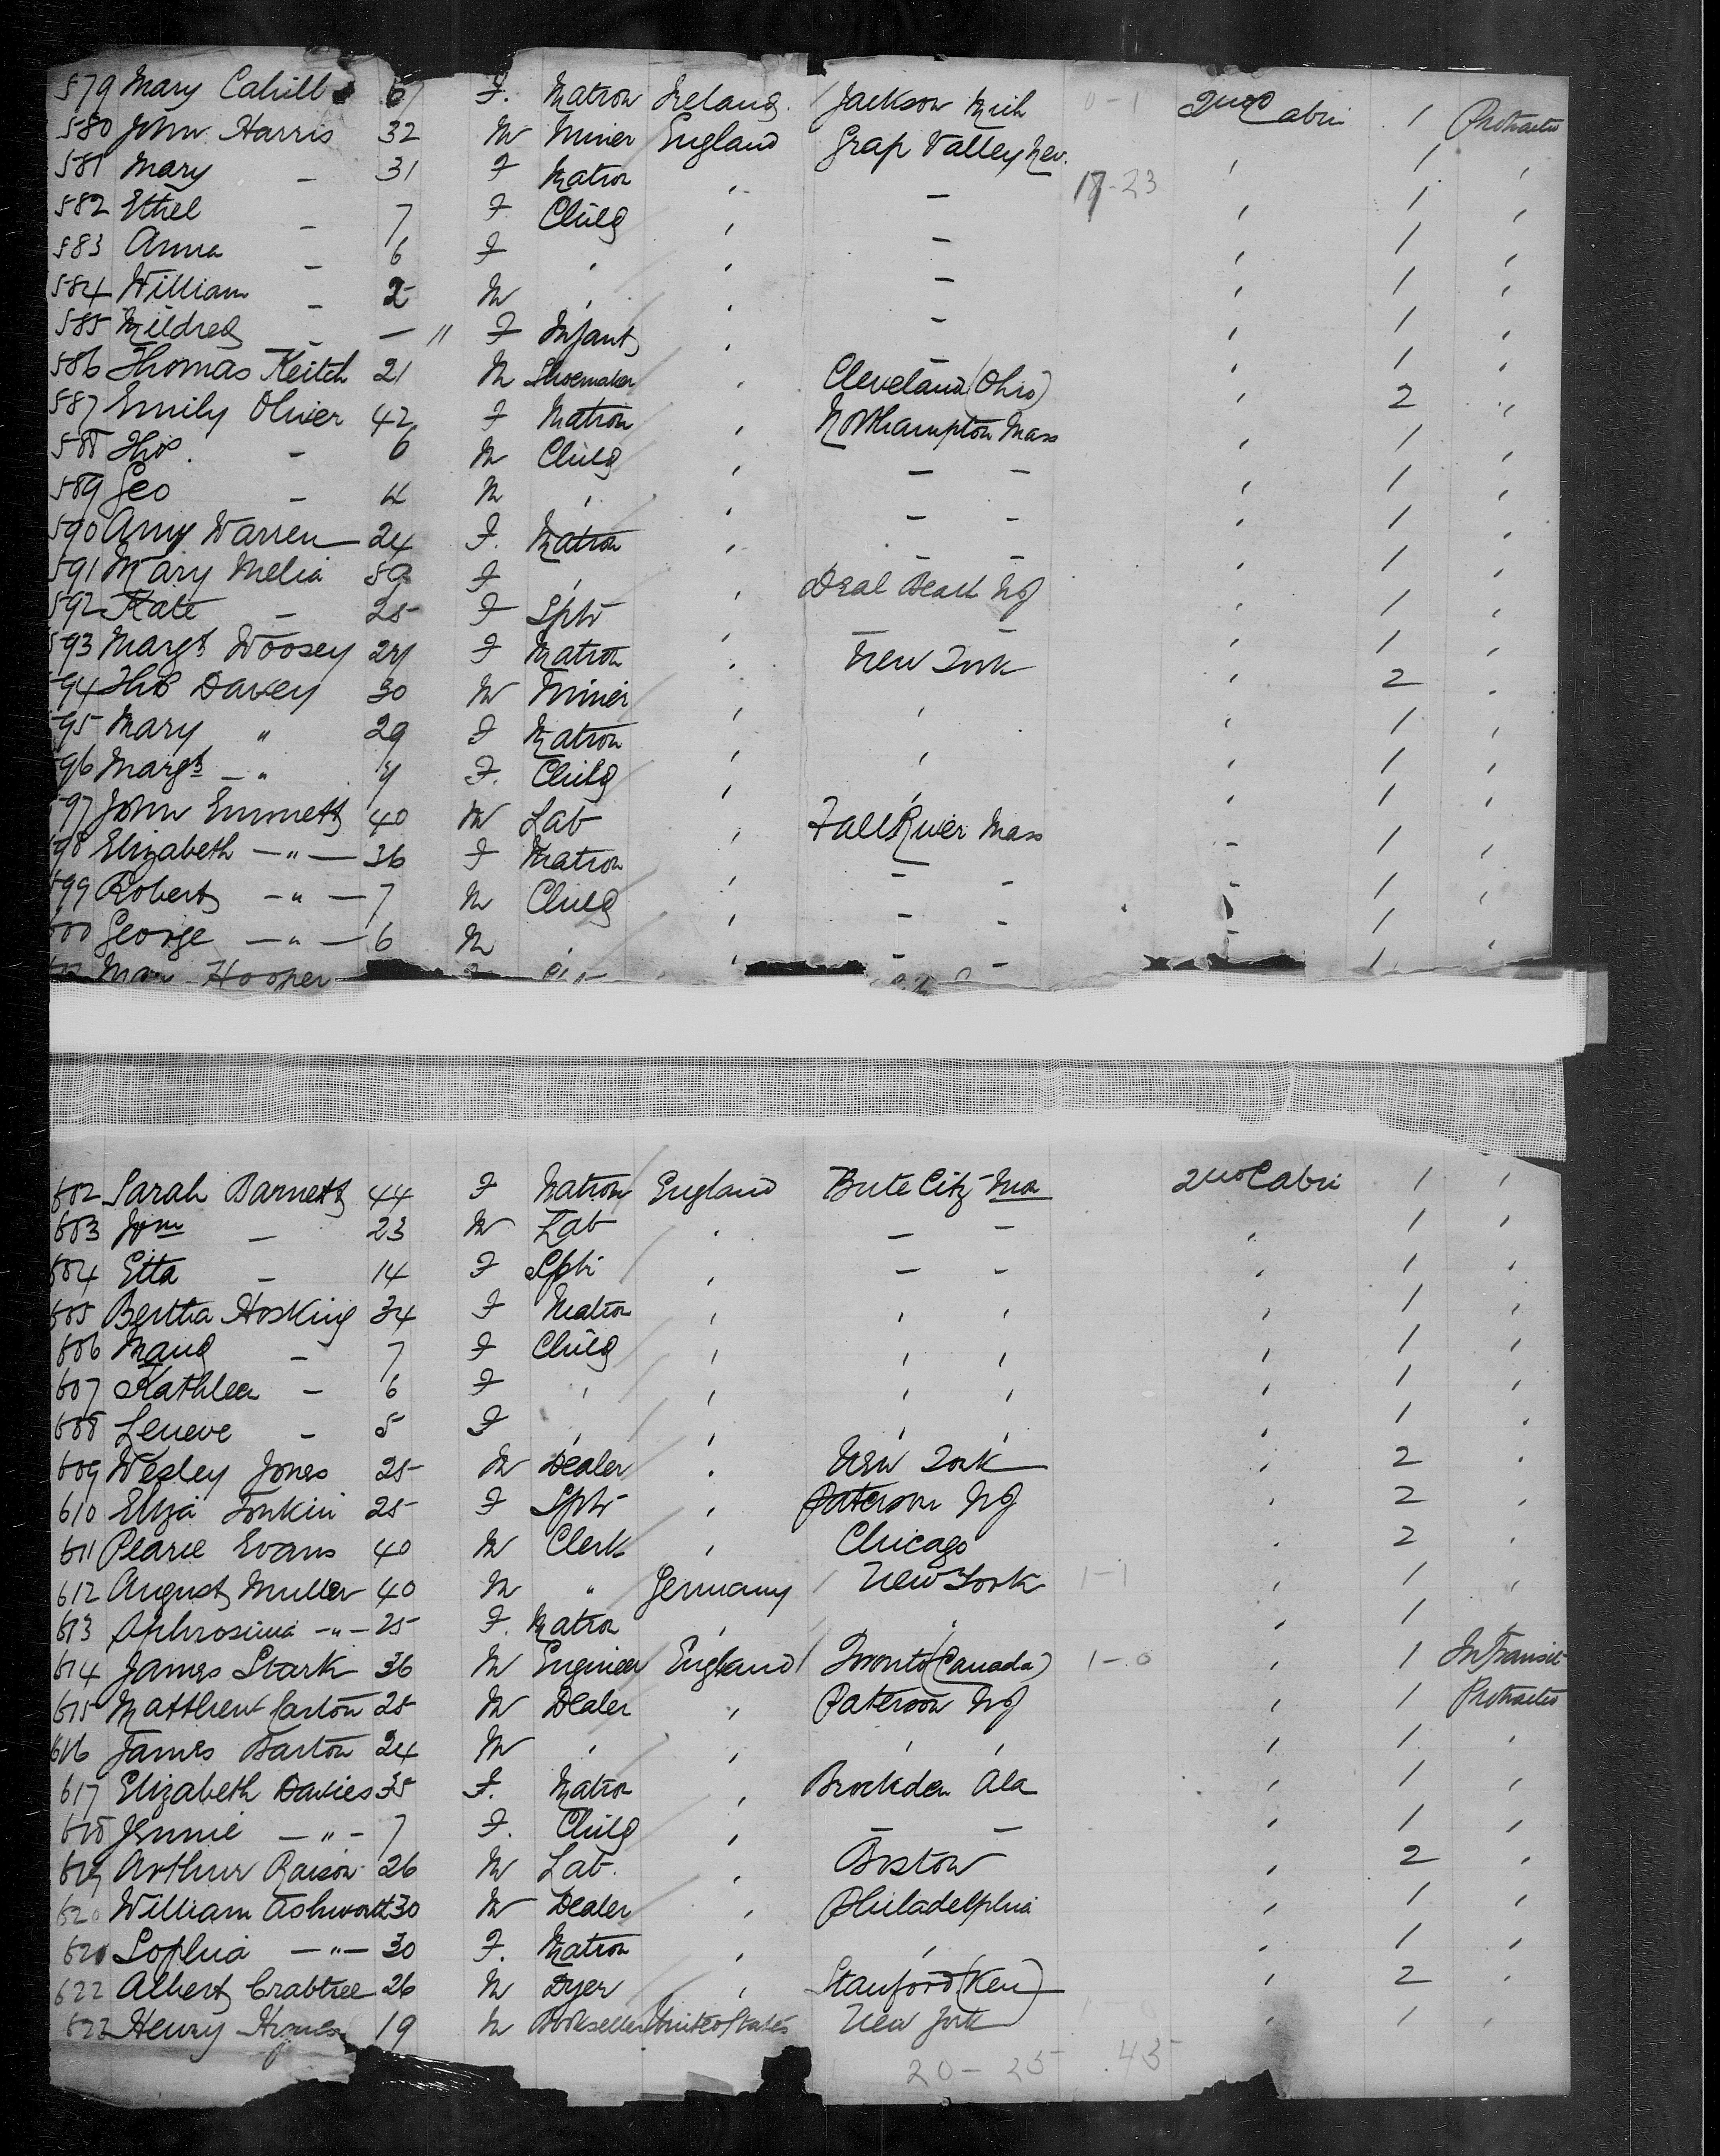 579 Mary Cahill 67 F. Matron Ireland Jackson Mich 0-1 2nd Cabin 1 Protracted
580 John Harris 32 M Miner England Grap Valley Nev. ' 1 '
581 Mary - 31 F Matron ' - 17-23 ' 1 '
582 Ethel - 7 F Child ' - ' 1 '
583 Anna - 6 F ' ' - ' 1 '
584 William - 2 M ' ' - ' 1 '
585 Mildred - - 11 F Infant ' - ' 1 '
586 Thomas Keitch 21 M Shoemaker ' Cleveland (Ohio) ' 2 '
587 Emily Oliver 42 F Matron ' Northampton Mass ' 1 '
588 Thos. - 6 M Child ' - - ' 1 '
589 Geo - 4 M ' ' - - ' 1 '
590 Amy Warren 24 F. Matron ' - - ' 1 '
591 Mary Melia 59 F ' ' Deal Beach NJ ' 1 '
592 Kate - 25 F Sptr ' - - ' 1 '
593 Margt Woosey 27 F Matron ' New York ' 2 '
594 Thos Davey 30 M Miner ' ' ' 1 '
595 Mary " 29 F Matron ' ' ' 1 '
596 Margt - " 4 F. Child ' ' ' 1 '
597 John Emmett 40 M Lab ' Fall River Mass - 1 '
598 Elizabeth -"- 36 F Matron ' - - - 1 '
599 Robert -"- 7 M Child ' - - - 1 '
600 George -"- 6 M ' ' - - - 1 '
Mary Hooper
602 Sarah Barnett 44 F Matron England Bute City Mon 2nd Cabin 1 '
603 Jno - 23 M Lab ' - - ' 1 '
604 Etta - 14 F Sptr ' - - ' 1 '
605 Bertha Hosking 34 F Matron ' ' ' ' 1 '
606 Maud - 7 F Child ' ' ' ' 1 '
607 Kathleen - 6 F ' ' ' ' ' 1 '
608 Leneve - 5 F ' ' ' ' ' 1 '
609 Wesley Jones 25 M Dealer ' New York ' 2 '
610 Eliza Tonkin 25 F Sptr ' Paterson NJ ' 2 '
611 Pearce Evans 40 M Clerk ' Chicago ' 2 '
612 August Muller 40 M " Germany New York 1-1 ' 1 '
613 Aphrosinia -"- 25 F. Matron ' ' ' 1
614 James Stark 36 M Engineer England Toronto (Canada) 1-0 ' 1 In Transit
615 Matthew Carton 25 M Dealer ' Paterson NJ ' 1 Protracted
616 James Barton 24 M ' ' ' ' ' 1 '
617 Elizabeth Davies 35 F. Matron ' Brockden Ala ' 1 '
618 Jennie -"- 7 F. Child ' - - ' 1 '
619 Arthur Raison 26 M Lab. ' Boston ' 2 '
620 William Ashworth 30 M Dealer ' Philadelphia ' 1 '
621 Sophia -"- 30 F. Matron ' ' ' 1 '
622 Albert Crabtree 26 M Dyer ' Stanford (Ken) ' 2 '
623 Henry 19 M Bookseller United States New York ' 1 '
20-25 45